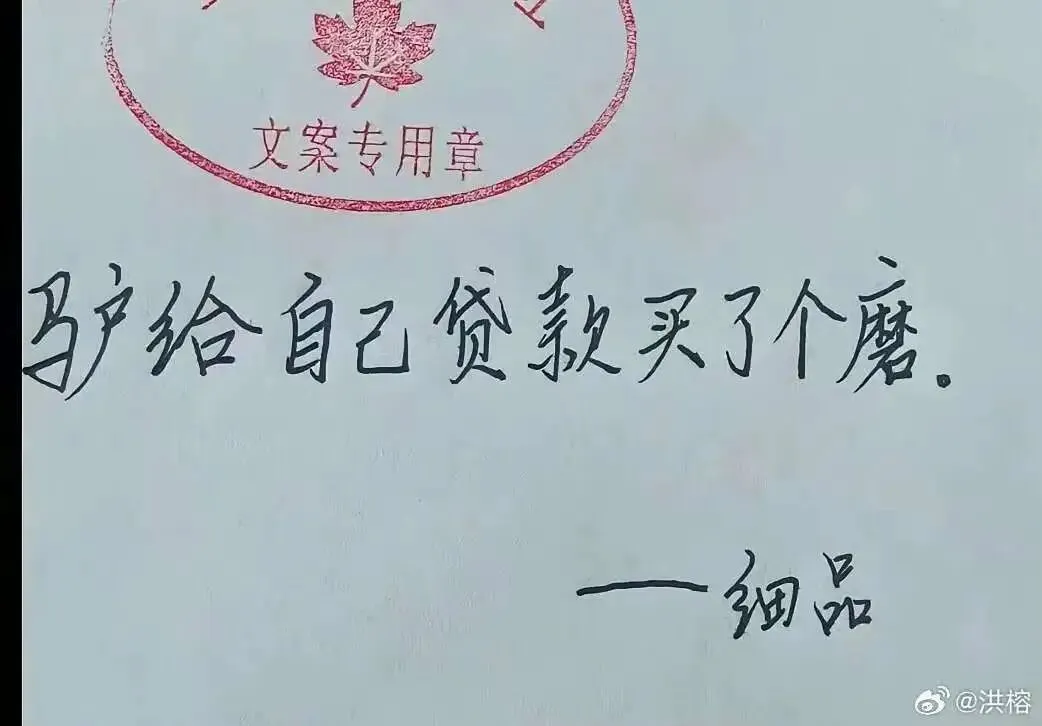 文案专用章
驴给自己贷款买了个磨.
——细品
@洪榕